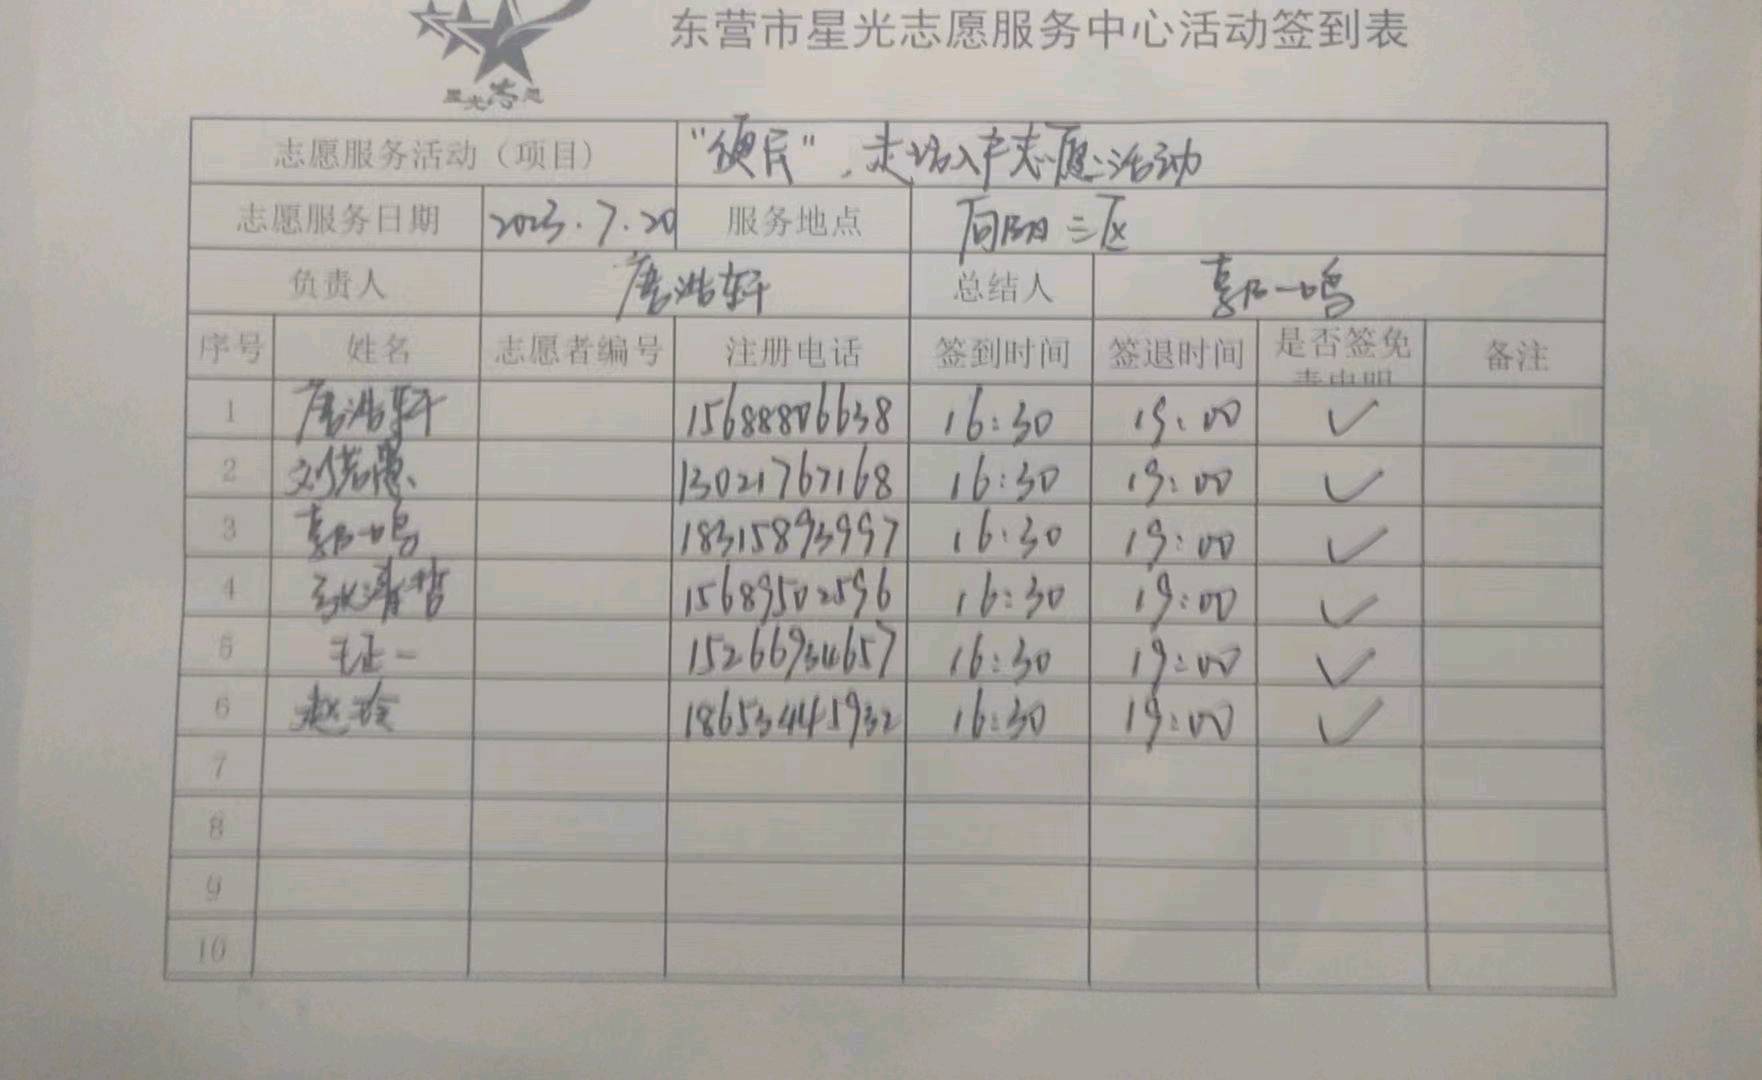 东营市星光志愿服务中心活动签到表
星光志愿
志愿服务活动（项目） "便民"，走访入户志愿活动
志愿服务日期 2023.7.20 服务地点 向阳三区
负责人 唐浩轩 总结人 郭一鸣
序号 姓名 志愿者编号 注册电话 签到时间 签退时间 是否签免责申明 备注
1 唐浩轩 15688806638 16:30 19:00 ✓
2 刘若愚 13021767168 16:30 19:00 ✓
3 郭一鸣 18315893997 16:30 19:00 ✓
4 张清哲 15689502596 16:30 19:00 ✓
5 王正一 15266934657 16:30 19:00 ✓
6 赵玲 18653445932 16:30 19:00 ✓
7
8
9
10